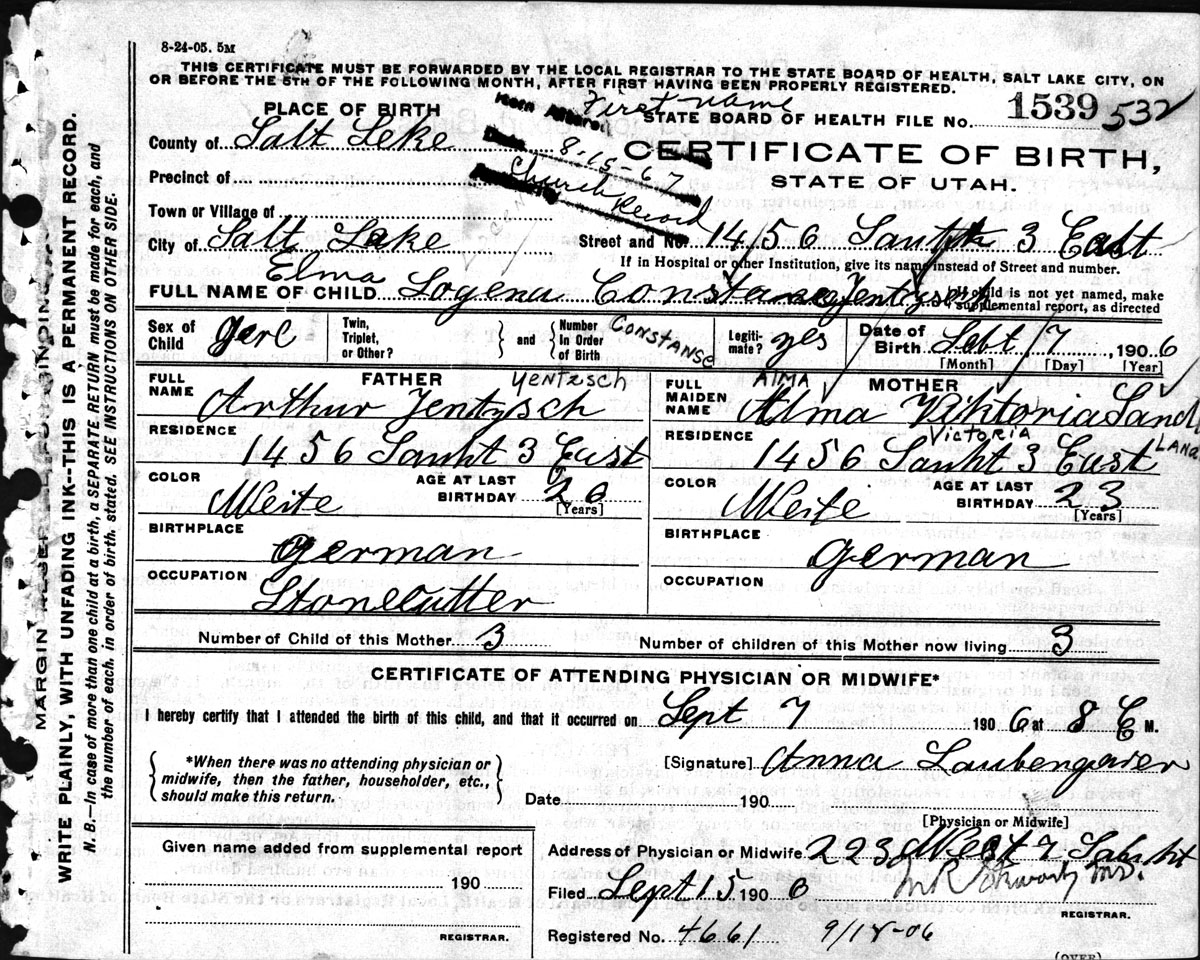 8-24-05. 5M
THIS CERTIFICATE MUST BE FORWARDED BY THE LOCAL REGISTRAR TO THE STATE BOARD OF HEALTH, SALT LAKE CITY, ON
OR BEFORE THE 5TH OF THE FOLLOWING MONTH, AFTER FIRST HAVING BEEN PROPERLY REGISTERED.
PLACE OF BIRTH
First name
STATE BOARD OF HEALTH FILE No. 1539 532
County of Salt Leke
Date 8-15-67
CERTIFICATE OF BIRTH,
Precinct of
Church Record
STATE OF UTAH.
Town or Village of
City of Salt Lake
Street and No. 1456 Sauht 3 East
If in Hospital or other Institution, give its name instead of Street and number.
Elma
FULL NAME OF CHILD Logena Constanse Jentzsch
If child is not yet named, make
supplemental report, as directed
Sex of Child gerl
Twin, Triplet, or Other? } and { Number In Order of Birth
Constanse
Legiti-mate? yes
Date of Birth Sebt 7, 1906
[Month] [Day] [Year]
FATHER
Yentzsch
FULL NAME Arthur Jentzsch
RESIDENCE
1456 Sauht 3 East
COLOR Weite
AGE AT LAST BIRTHDAY 26
[Years]
BIRTHPLACE
german
OCCUPATION
Stonecutter
ALMA
MOTHER
FULL MAIDEN NAME Alma Viktoria
Victoria
RESIDENCE
1456 Sauht 3 East
COLOR Weite
AGE AT LAST BIRTHDAY 23
[Years]
BIRTHPLACE
german
OCCUPATION
Number of Child of this Mother 3
Number of children of this Mother now living 3
CERTIFICATE OF ATTENDING PHYSICIAN OR MIDWIFE*
I hereby certify that I attended the birth of this child, and that it occurred on Sept 7 1906 at 8 E M.
*When there was no attending physician or
midwife, then the father, householder, etc.,
should make this return.
[Signature] Anna Laubengaier
Date 190
[Physician or Midwife]
Given name added from supplemental report
190
REGISTRAR.
Address of Physician or Midwife 223 West 7 Sauht
Filed Sept 15 1906
REGISTRAR.
Registered No. 4661 9/18-06
(OVER)
MARGIN RESERVED FOR BINDING
WRITE PLAINLY, WITH UNFADING INK--THIS IS A PERMANENT RECORD.
N. B.—In case of more than one child at a birth, a SEPARATE RETURN must be made for each, and
the number of each, in order of birth, stated. SEE INSTRUCTIONS ON OTHER SIDE.